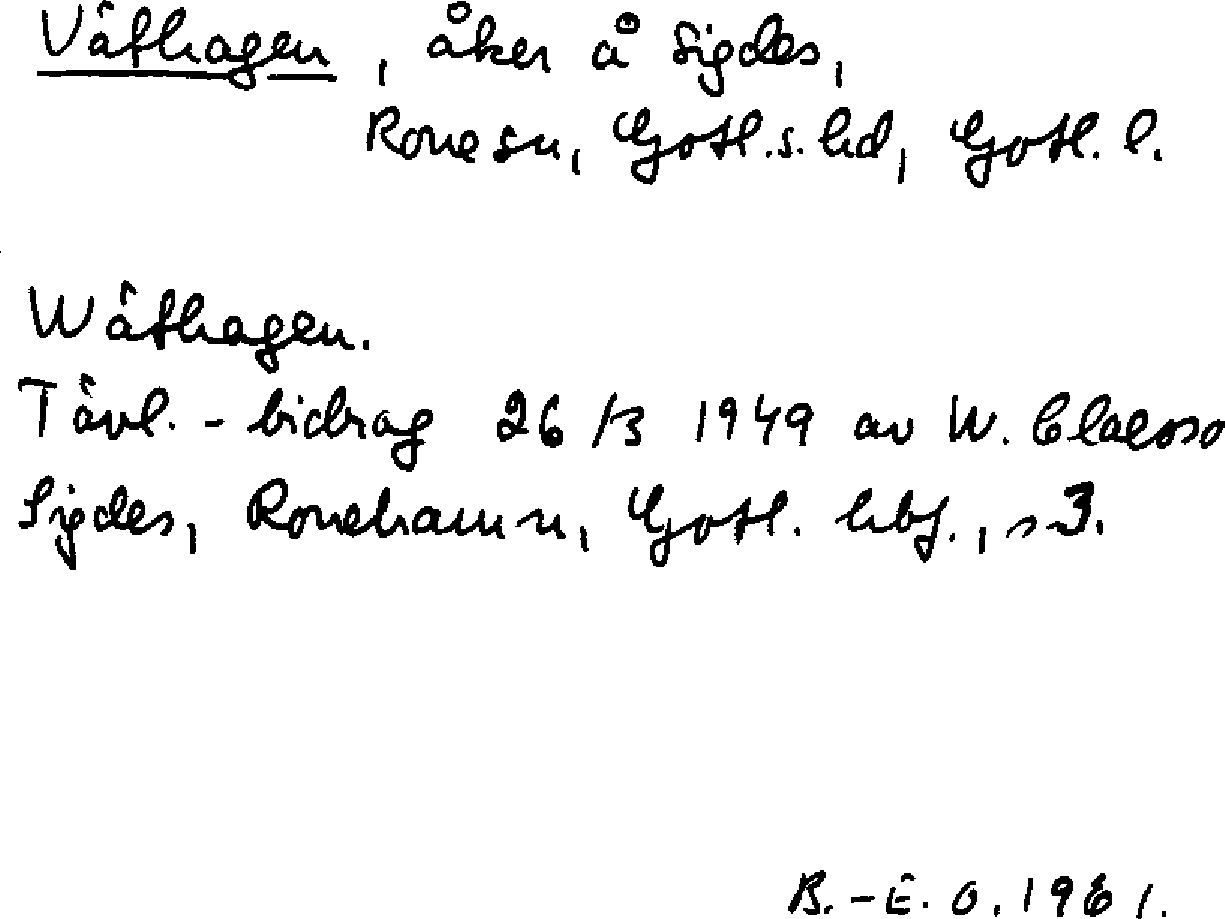 Väthagen, åker å Sigdes,
Rone sn, Gotl. s. hd, Gotl. l.
Wäthagen.
Tävl. - bidrag 26/3 1949 av W. Claesso
Sigdes, Ronehamn, Gotl. hbf., s 3.
B.-E. O. 1961.